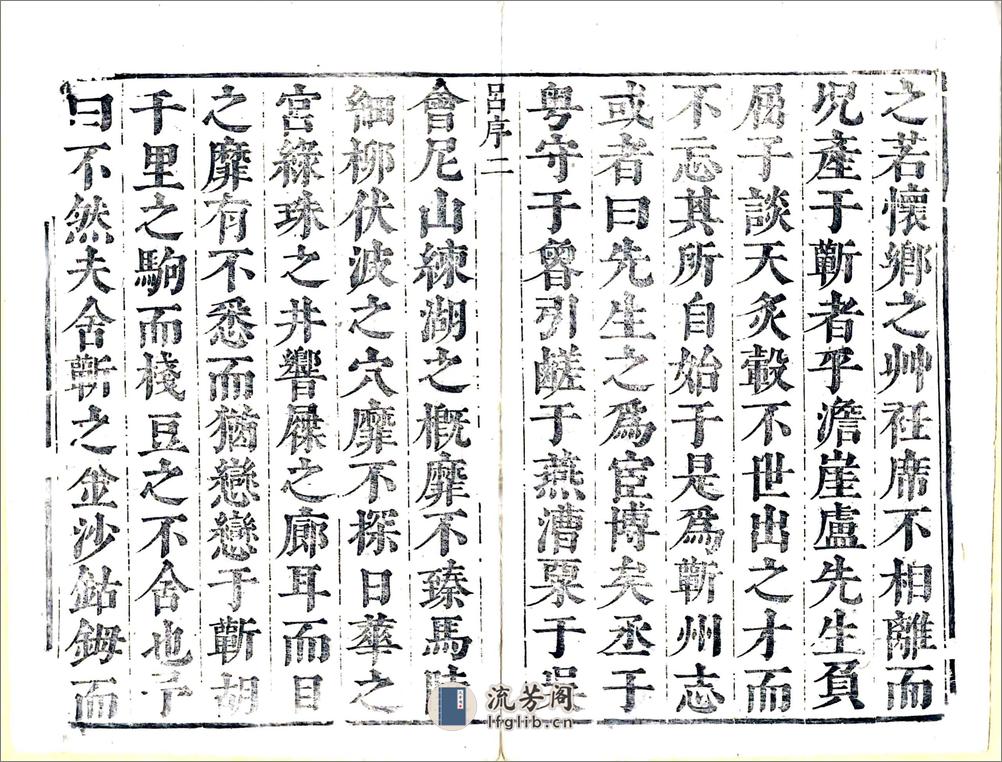 之若懷鄉之艸衽席不相離而
况產于蘄者乎澹崖盧先生負
屈子談天炙轂不世出之才而
不忘其所自始于是爲蘄州志
或者曰先生之爲宦博矣丞于
粤守于引鹺于燕漕粟于吳
呂序 二
會尼山練湖之概靡不臻馬陵
細柳伏波之穴靡不探日華之
宮綠珠之井響屧之廊耳而目
之靡有不悉而猶戀戀于蘄胡
千里之駒而棧豆之不舍也予
曰不然夫舍蘄之金沙鈷鉧而
流芳阁
lfglib.cn